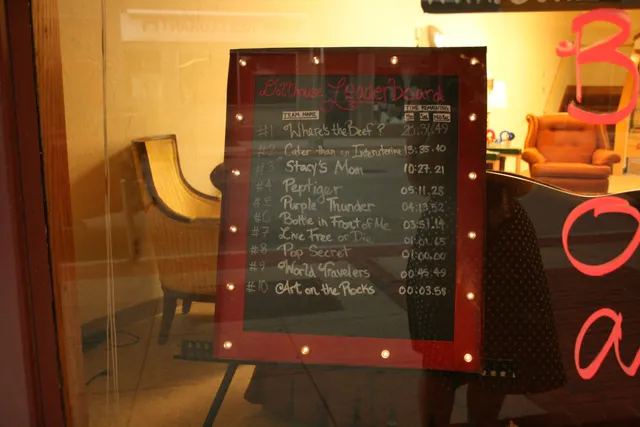 Leaderboard
TEAM NAME TIME REMAINING
#1 Where's the Beef?
#2 Cater than an Intenuterine 15:35.40
#3 Stacy's Mom 10:27.21
#4 Peptiger 05:11.28
#5 Purple Thunder 04:13.52
#6 Bottle in Front of Me 03:51.14
#7 Live Free or Die 01:01.65
#8 Pop Secret 01:00.00
#9 World Travelers 00:45.49
#10 Art on the Rocks 00:03.58
B
o
a